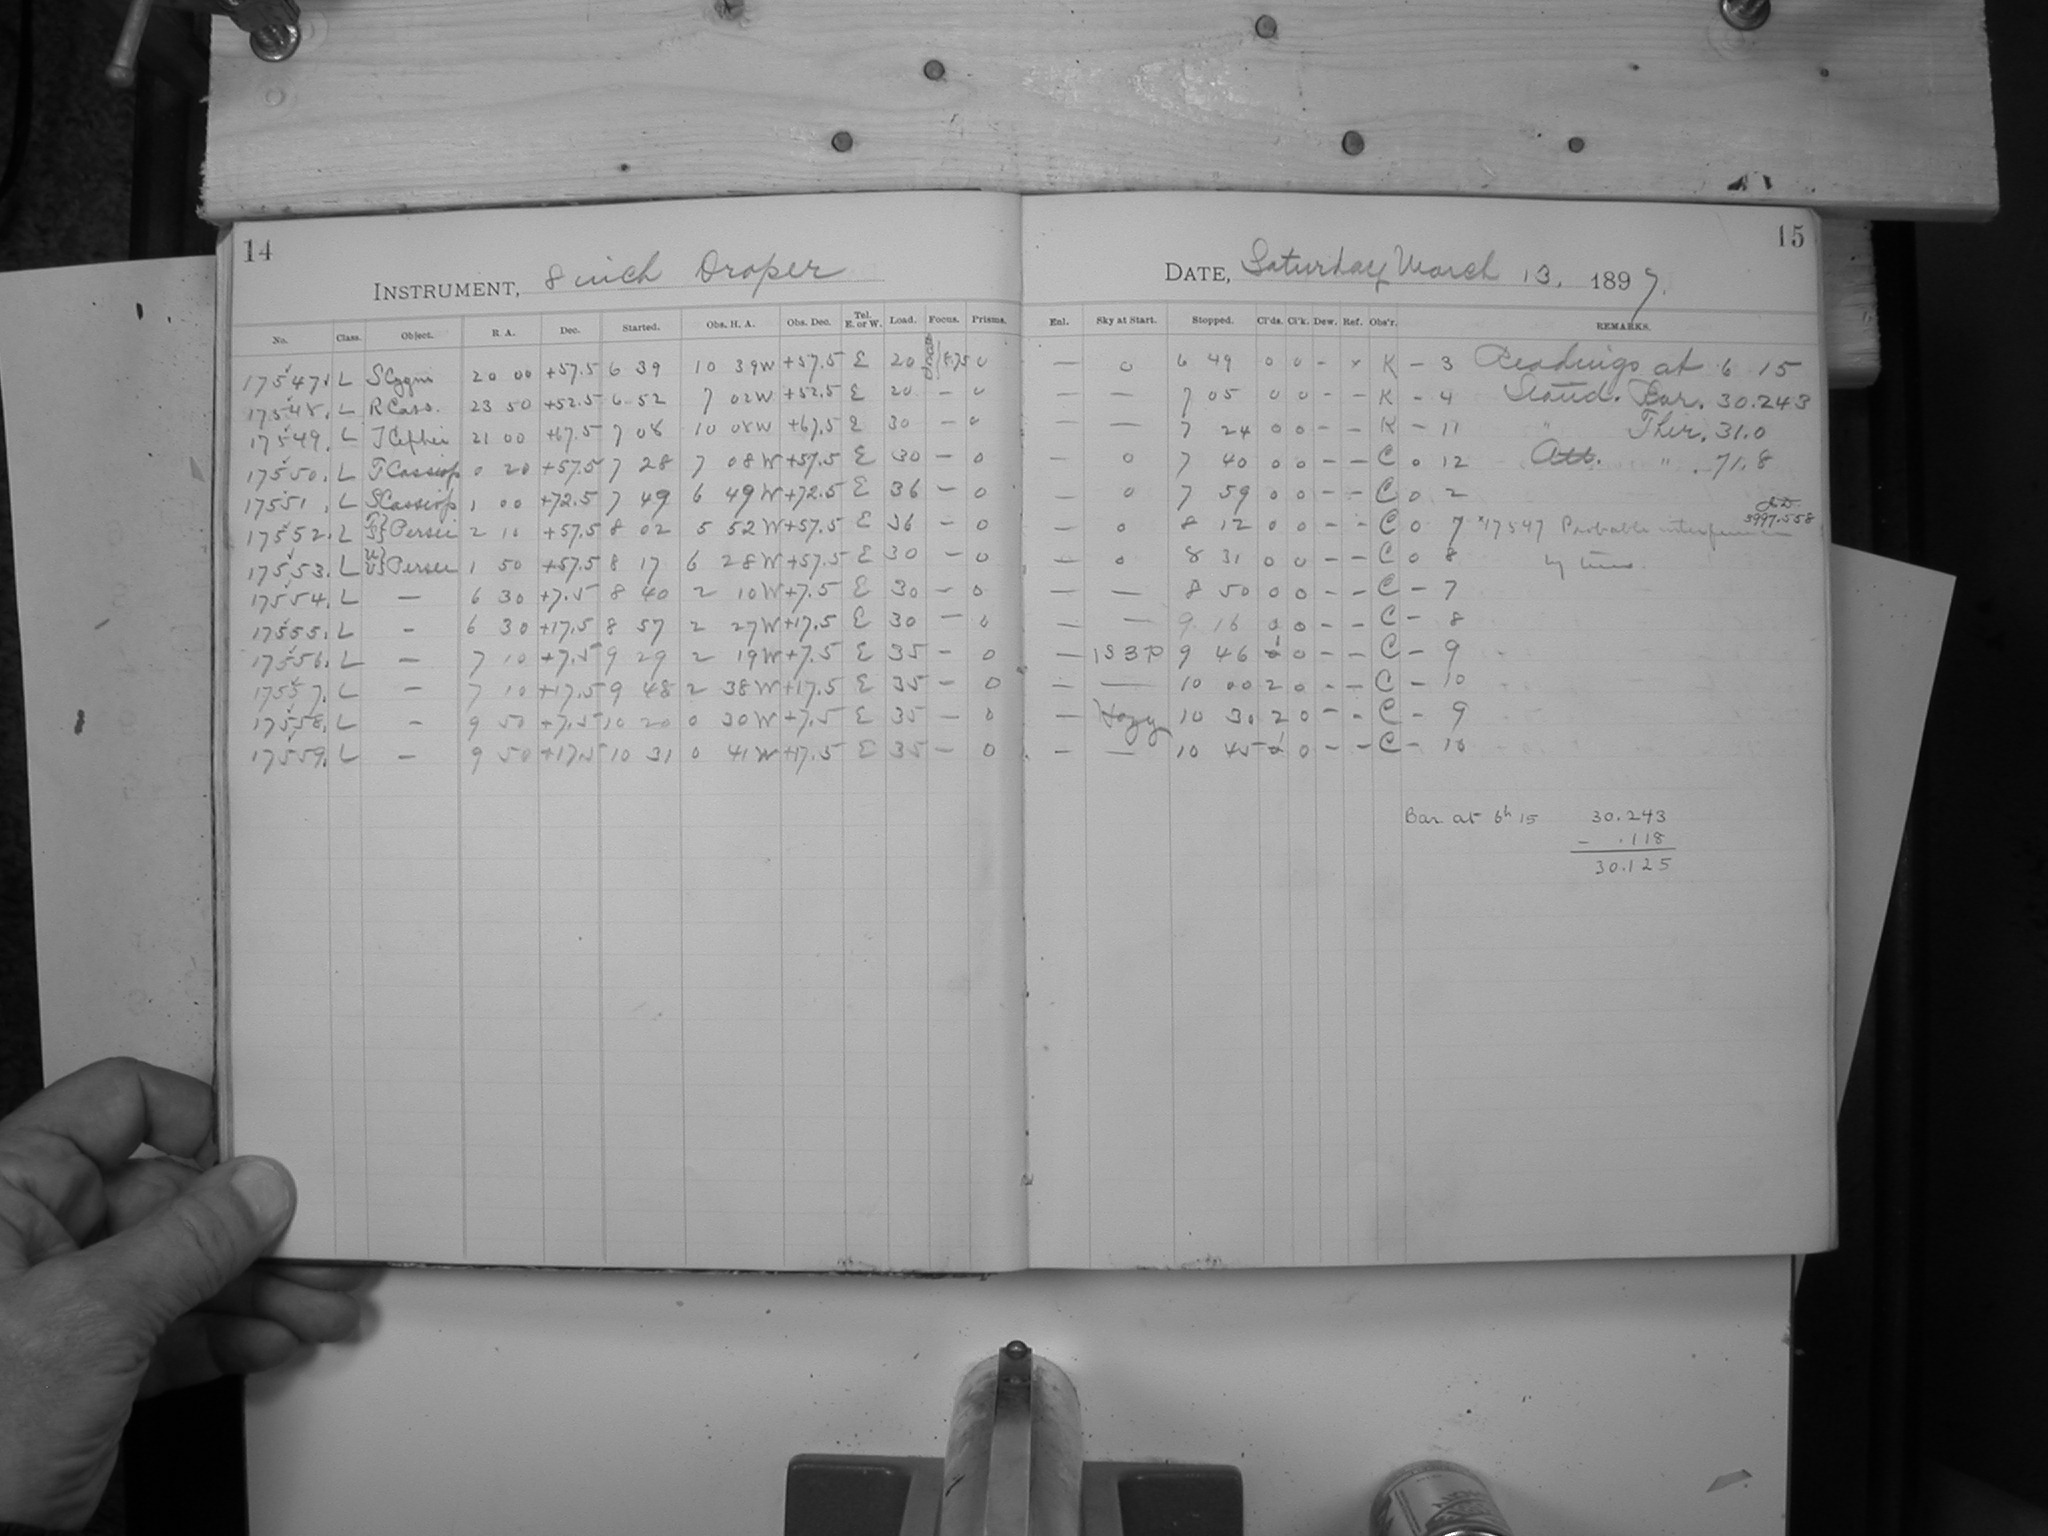 14
INSTRUMENT, 8 inch Draper
No. Class. Object. R. A. Dec. Started. Obs. H. A. Obs. Dec. Tel. E. or W. Load. Focus. Prisms.
17547. L S Cygni 20 00 +57.5 6 39 10 39 W +57.5 E 20 8.75 0
17548. L R Cass. 23 50 +52.5 6 52 7 02 W +52.5 E 20 – 0
17549. L T Cephei 21 00 +67.5 7 08 10 08 W +67.5 E 30 – 0
17550. L T Cassiop 0 20 +57.5 7 28 7 08 W +57.5 E 30 – 0
17551. L S Cassiop 1 00 +72.5 7 49 6 49 W +72.5 E 36 – 0
17552. L Persei 2 10 +57.5 8 02 5 52 W +57.5 E 36 – 0
17553. L Persei 1 50 +57.5 8 17 6 28 W +57.5 E 30 – 0
17554. L – 6 30 +7.5 8 40 2 10 W +7.5 E 30 – 0
17555. L – 6 30 +17.5 8 57 2 27 W +17.5 E 30 – 0
17556. L – 7 10 +7.5 9 29 2 19 W +7.5 E 35 – 0
17557. L – 7 10 +17.5 9 48 2 38 W +17.5 E 35 – 0
17558. L – 9 50 +7.5 10 20 0 30 W +7.5 E 35 – 0
17559. L – 9 50 +17.5 10 31 0 41 W +17.5 E 35 – 0
15
DATE, Saturday March 13, 1897.
Enl. Sky at Start. Stopped. Cl'ds. Cl'k. Dew. Ref. Obs'r. REMARKS.
– 0 6 49 0 0 – × K – 3 Readings at 6 15
– — 7 05 0 0 – – K – 4 Stand. Bar. 30.243
– — 7 24 0 0 – – K – 11 " Ther. 31.0
– 0 7 40 0 0 – – C 0 12 Att. " . 71.8
– 0 7 59 0 0 – – C 0 2
J.D.
3997.558
– 0 8 12 0 0 – – C 0 7 ×17547 Probable interference
– 0 8 31 0 0 – – C 0 8 by trees.
– — 8 50 0 0 – – C – 7
– — 9 16 0 0 – – C – 8
– 1S3P 9 46 1 0 – – C – 9
– — 10 00 2 0 – – C – 10
– Hazy 10 30 2 0 – – C – 9
– — 10 45 1 0 – – C – 10
Bar at 6h 15 30.243
– .118
30.125